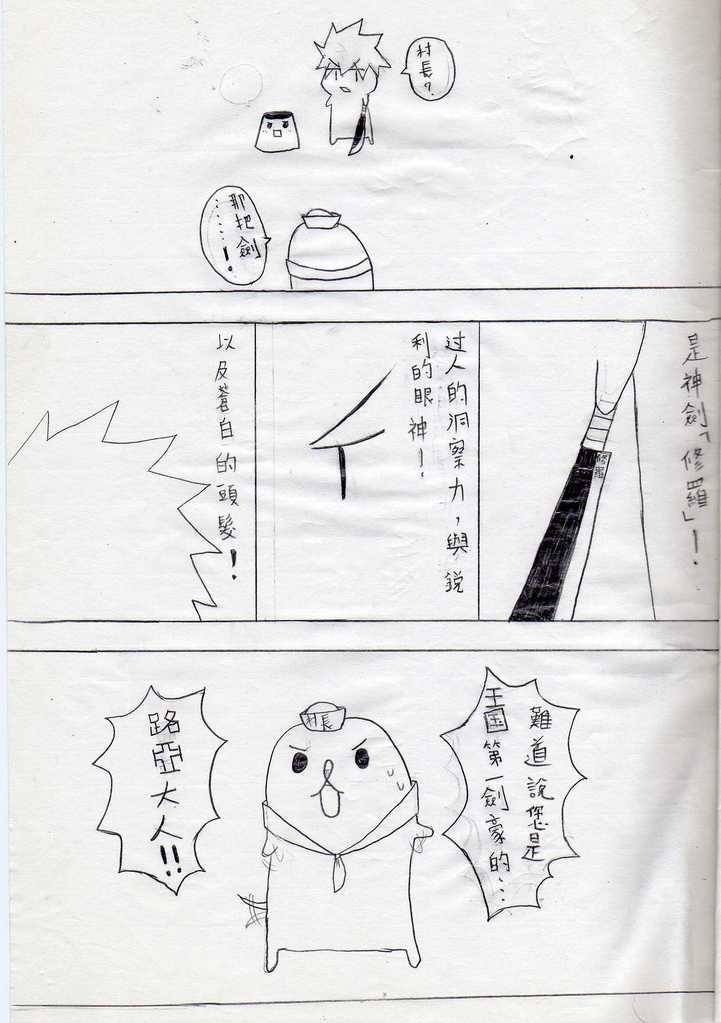 村長？
那把劍
………！
是神劍「修羅」！
修羅
过人的洞察力，與銳
利的眼神！
以及蒼白的頭髮！
難道說您是
王国第一劍豪的…
村長
路亞大人!!